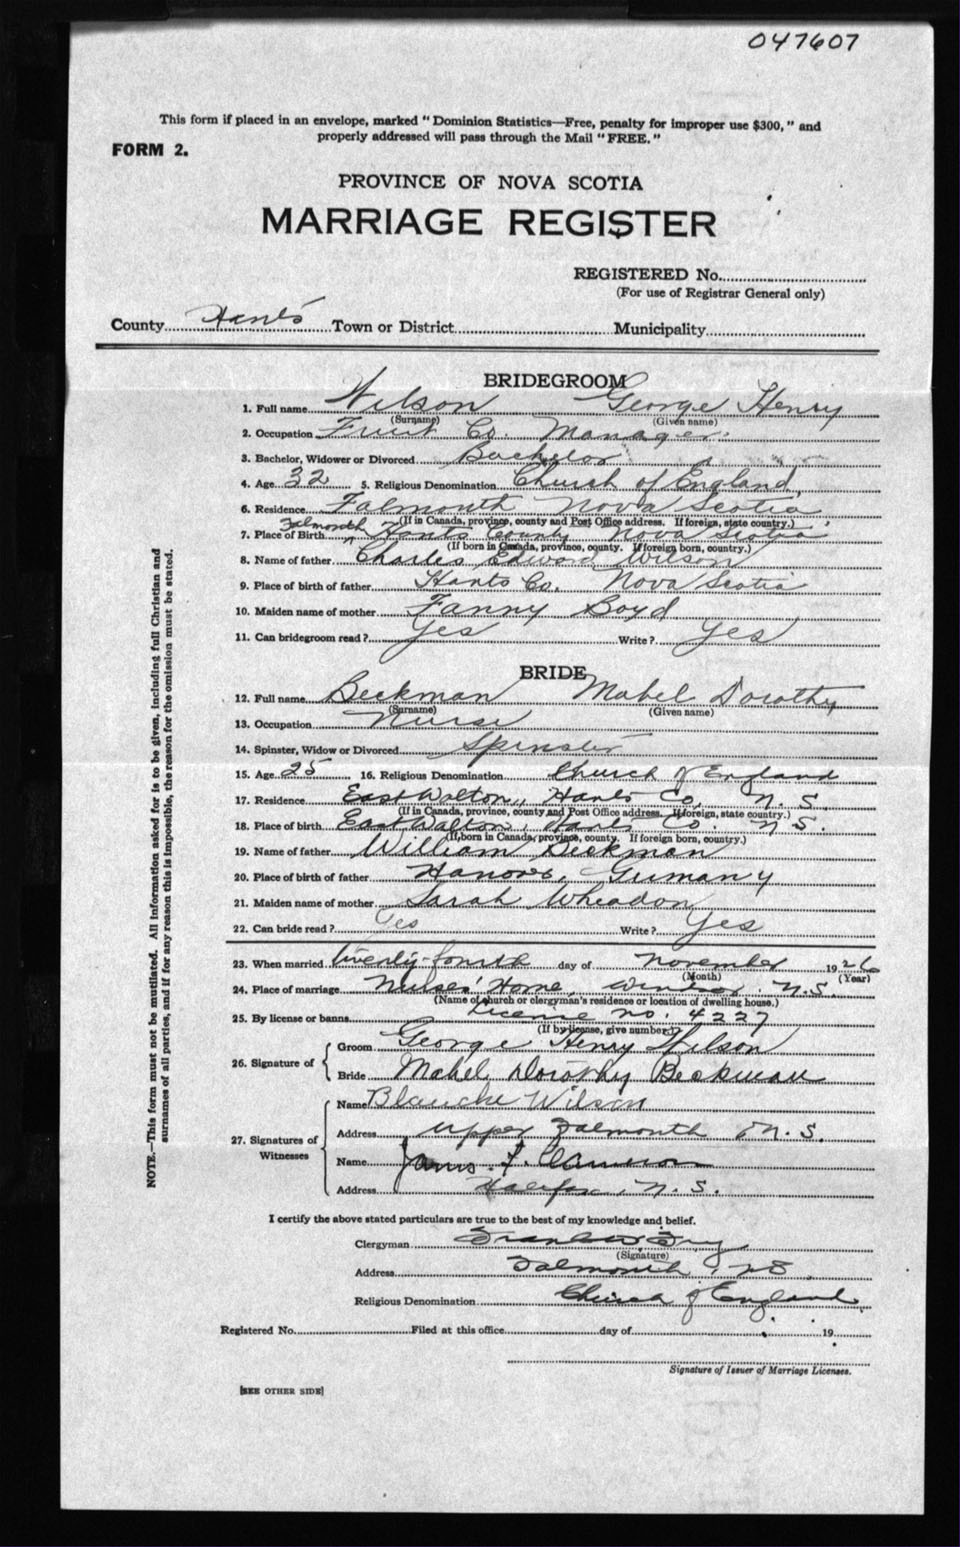 047607
This form if placed in an envelope, marked "Dominion Statistics—Free, penalty for improper use $300," and
properly addressed will pass through the Mail "FREE."
FORM 2.
PROVINCE OF NOVA SCOTIA
MARRIAGE REGISTER
REGISTERED No.
(For use of Registrar General only)
County Hants Town or District Municipality
BRIDEGROOM
1. Full name Wilson George Henry
(Surname) (Given name)
2. Occupation Fruit Co. Manager
3. Bachelor, Widower or Divorced Bachelor
4. Age 32 5. Religious Denomination Church of England
6. Residence Falmouth Nova Scotia
(If in Canada, province, county and Post Office address. If foreign, state country.)
7. Place of Birth Falmouth Hants County Nova Scotia
(If born in Canada, province, county. If foreign born, country.)
8. Name of father Charles Edward Wilson
9. Place of birth of father Hants Co. Nova Scotia
10. Maiden name of mother Fanny Boyd
11. Can bridegroom read? Yes Write? Yes
BRIDE
12. Full name Beckman Mabel Dorothy
(Surname) (Given name)
13. Occupation Nurse
14. Spinster, Widow or Divorced Spinster
15. Age 25 16. Religious Denomination Church of England
17. Residence East Walton, Hants Co. N.S.
(If in Canada, province, county and Post Office address. If foreign, state country.)
18. Place of birth East Walton, Hants Co. N.S.
(If born in Canada, province, county. If foreign born, country.)
19. Name of father William Beckman
20. Place of birth of father Hanover, Germany
21. Maiden name of mother Sarah Wheadon
22. Can bride read? Yes Write? Yes
23. When married twenty-fourth day of November 1926
(Month) (Year)
24. Place of marriage Nurses' Home, Windsor. N.S.
(Name of church or clergyman's residence or location of dwelling house.)
25. By license or banns License no. 4227
(If by license, give number.)
26. Signature of Groom George Henry Wilson
Bride Mabel Dorothy Beckman
27. Signatures of Witnesses Name Blanche Wilson
Address Upper Falmouth N.S.
Name James F. Cameron
Address Halifax, N.S.
I certify the above stated particulars are true to the best of my knowledge and belief.
Clergyman
(Signature)
Address Falmouth, N.S.
Religious Denomination Church of England
Registered No. Filed at this office day of 19
Signature of Issuer of Marriage Licenses.
[SEE OTHER SIDE]
NOTE.—This form must not be mutilated. All information asked for is to be given, including full Christian and
surnames of all parties, and if for any reason this is impossible, the reason for the omission must be stated.